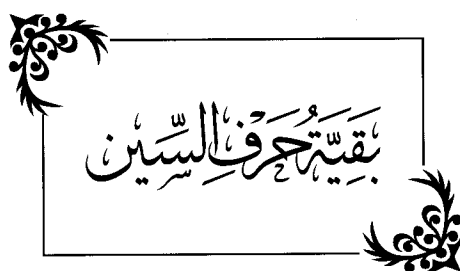 بَقِيَّةُ حَرْفِ السِّين